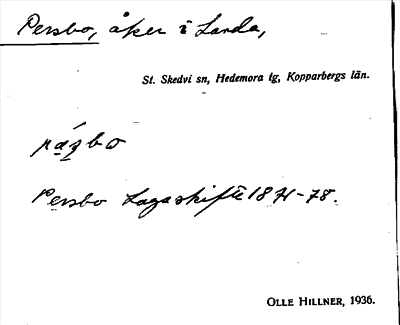 Persbo, åker i Landa,
St. Skedvi sn, Hedemora tg, Kopparbergs län.
Persbo Laga skifte 1871-78.
OLLE HILLNER, 1936.